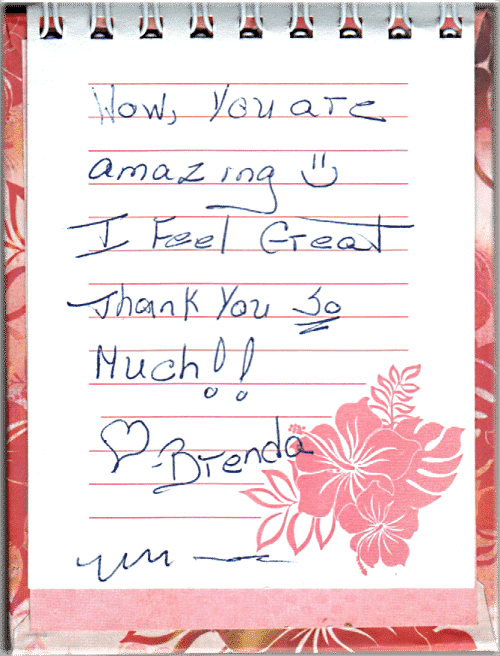 Wow, You are
amazing ü
I Feel Great
Thank You So
Much!!
♡-Brenda